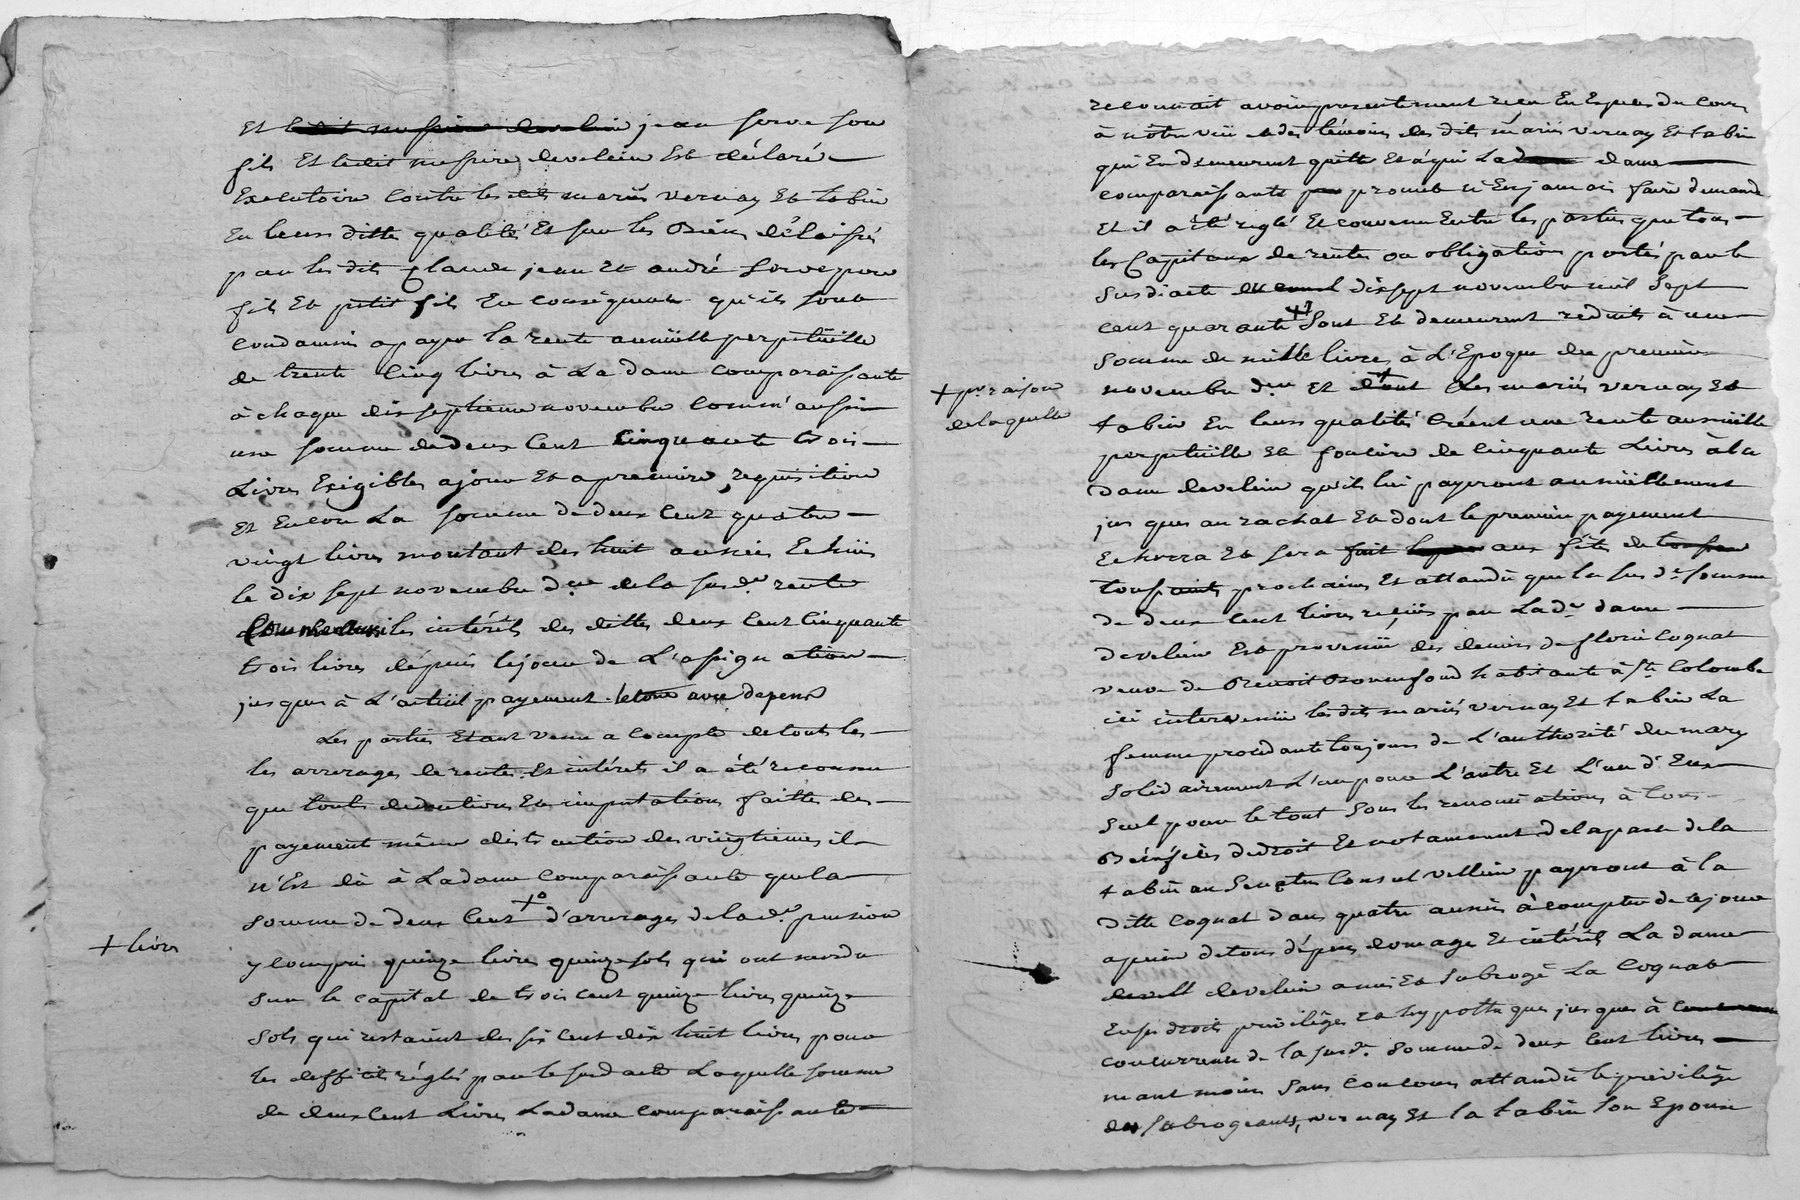 Et jean serve son
fils Et ledit messire develein Est déclaré
Executoire Contre les dits mariés vernay Et tabin
En leurs ditte qualité Et sur les Biens délaissés
par les dits Claude jean et andré Serve pere
fils Et petit fils En conséquence qu'ils sont
Condamnés a payer la rente annüelle perpétüelle
de trente Cinq livres à La dame Comparaissante
à chaque dix septieme novembre Comm'aussi
une somme de deux Cent Cinquante trois
Livres Exigibles ajour Et a premiere requisition
Et Encore La somme de deux Cent quatre
vingt livres montant des huit années Echües
le dix sept novembre d.er de la susd.e rente
les intérêts des dittes deux Cent Cinquante
trois livres dépuis le jour de L'assignation
jusques à L'actüel payement le tout avec depens
Les parties Etant venu a Compte de touts les
les arrerages de rentes Et intérêts il a été reconnu
que touts deduction Et imputations faittes des
payements même distraction des vingtiemes il
n'Est dû à Ladame Comparaissante que la
somme de deux Cent +° d'arrerages de lad.e pension
+ livres
y Compris quinze livres quinze sols qui ont
sur le capital de trois cent quinze livres quinze
sols qui restoient des six cent dix huit livres pour
les defficits réglés par le susd acte Laquelle somme
de deux Cent Livres Ladame Comparaissante
reconnait avoir presentement recu En Especes du Cours
à nôtre vüe et des témoins des dits mariés vernay Et tabin
qui En demeurent quitte Et aqui La dame
comparaissante promet n'En jamais faire demande
Et il a été reglé Et convenu Entre les parties que tous
les Capitaux de rentes ou obligations portés par le
susdi acte dixsept novembre mil sept
cent quarante +1 sont Et demeurent réduits à une
somme de mille livres à L'Epoque du premier
novembre d.er et + Les mariés vernay Et
+ p.r raison
de laquelle
tabin En leurs qualités Créent une rente annüelle
perpetüelle Et fonciere de Cinquante Livres à la
dame develein qu'ils lui payeront annüellement
jusques au rachat Et dont le premier payement
Echerra Et sera fait aux fêtes de
toussaints prochaines Et attandû que la sus d.e somme
de deux Cent livres reçües par Lad.e dame
develein Est provenüe des deniers de florie Cognat
veuve de Benoit Bonnefond habitante à S.te Colombe
ici intervenüe les dits mariés vernay Et tabin La
femme procédante toujours de L'authorité du mary
solidairement L'un pour L'autre Et L'un d'Eux
seul pour le tout sous les renonciations à tous
Bénéfices de droit Et notamment de la part de la
tabin au Senatus Consul velleïen payeront à la
ditte Cognat dans quatre années à compter de cejour
apeine de tous dépens domage Et intérêts La dame
develein a mis Et subrogé La Cognat
En ses droits privilèges et hypotteques jusques à
concurrence de la susd.e somme de deux Cent livres
neant moins sans Concours attandû le privilège
des subrogeants, vernay Et la tabin son Epouse